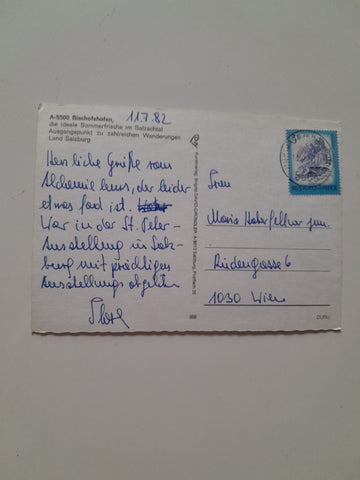 A-5500 Bischofshofen,
die ideale Sommerfrische im Salzachtal
Ausgangspunkt zu zahlreichen Wanderungen
Land Salzburg
11.7.82
Herzliche Grüße vom
Alchemie kurs, der leider
etwas fad ist.
War in der St. Peter-
Ausstellung in Salz-
burg mit prächtigen
Ausstellungsobjekten
Frau
Maria
Riedengasse 6
1030 Wien